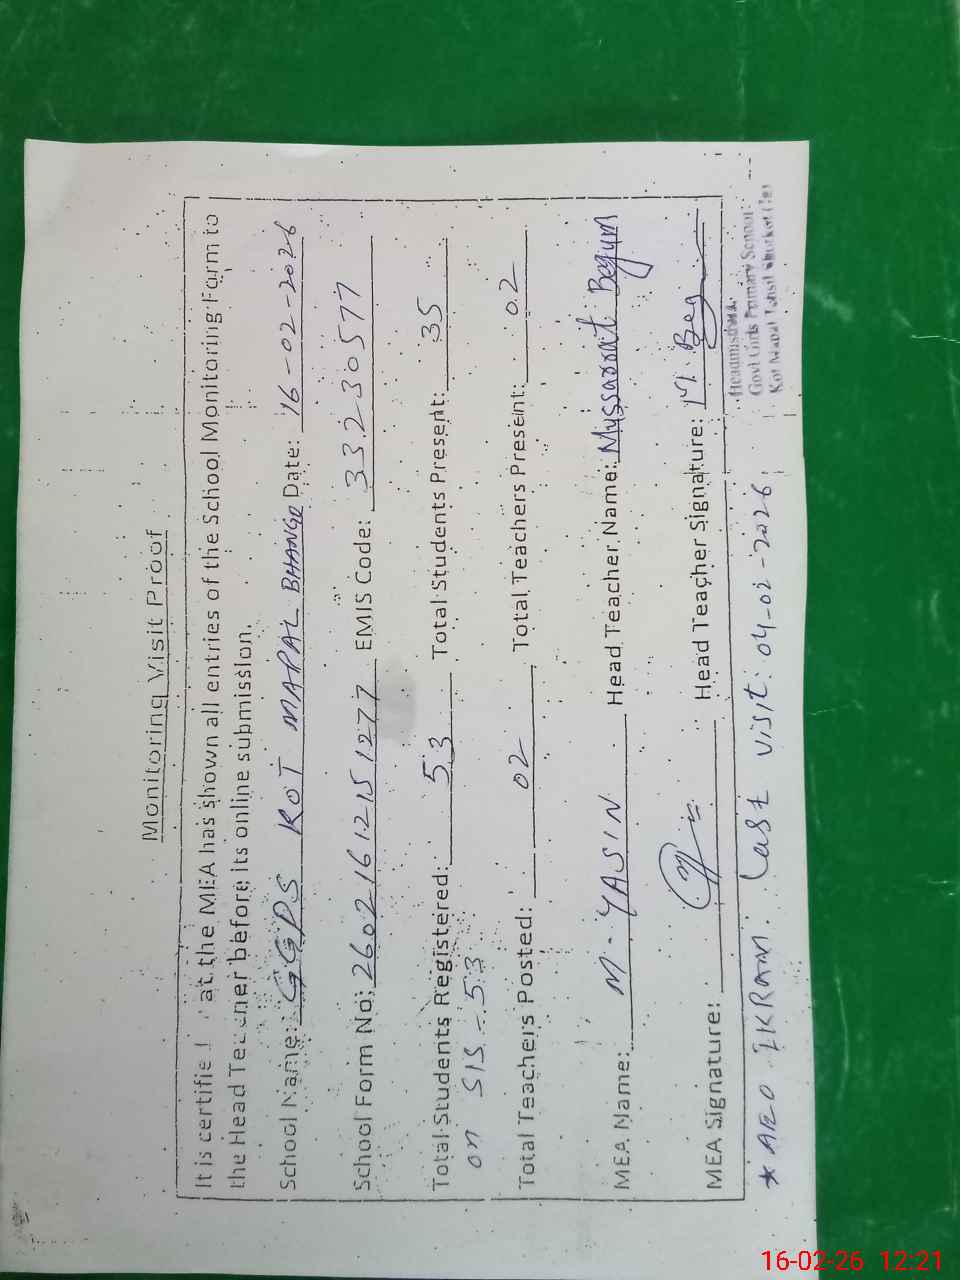 Monitoring Visit Proof
It is certifie at the MEA has shown all entries of the School Monitoring Form to
the Head Teacher before its online submission.
School Name: GGPS KOT MAPAL BHANGO Date: 16-02-2026
School Form No: 26021612151277 EMIS Code: 33230577
Total Students Registered: 53 Total Students Present: 35
on SIS - 53
Total Teachers Posted: 02 Total Teachers Present: 02
MEA Name: M. YASIN Head Teacher Name: Mussarrat Begum
MEA Signature: Head Teacher Signature: M. Beg
Headmistress
Govt Girls Primary School
Kot Mapal Tehsil
* AEO IKRAM. Last visit: 04-02-2026
16-02-26 12:21